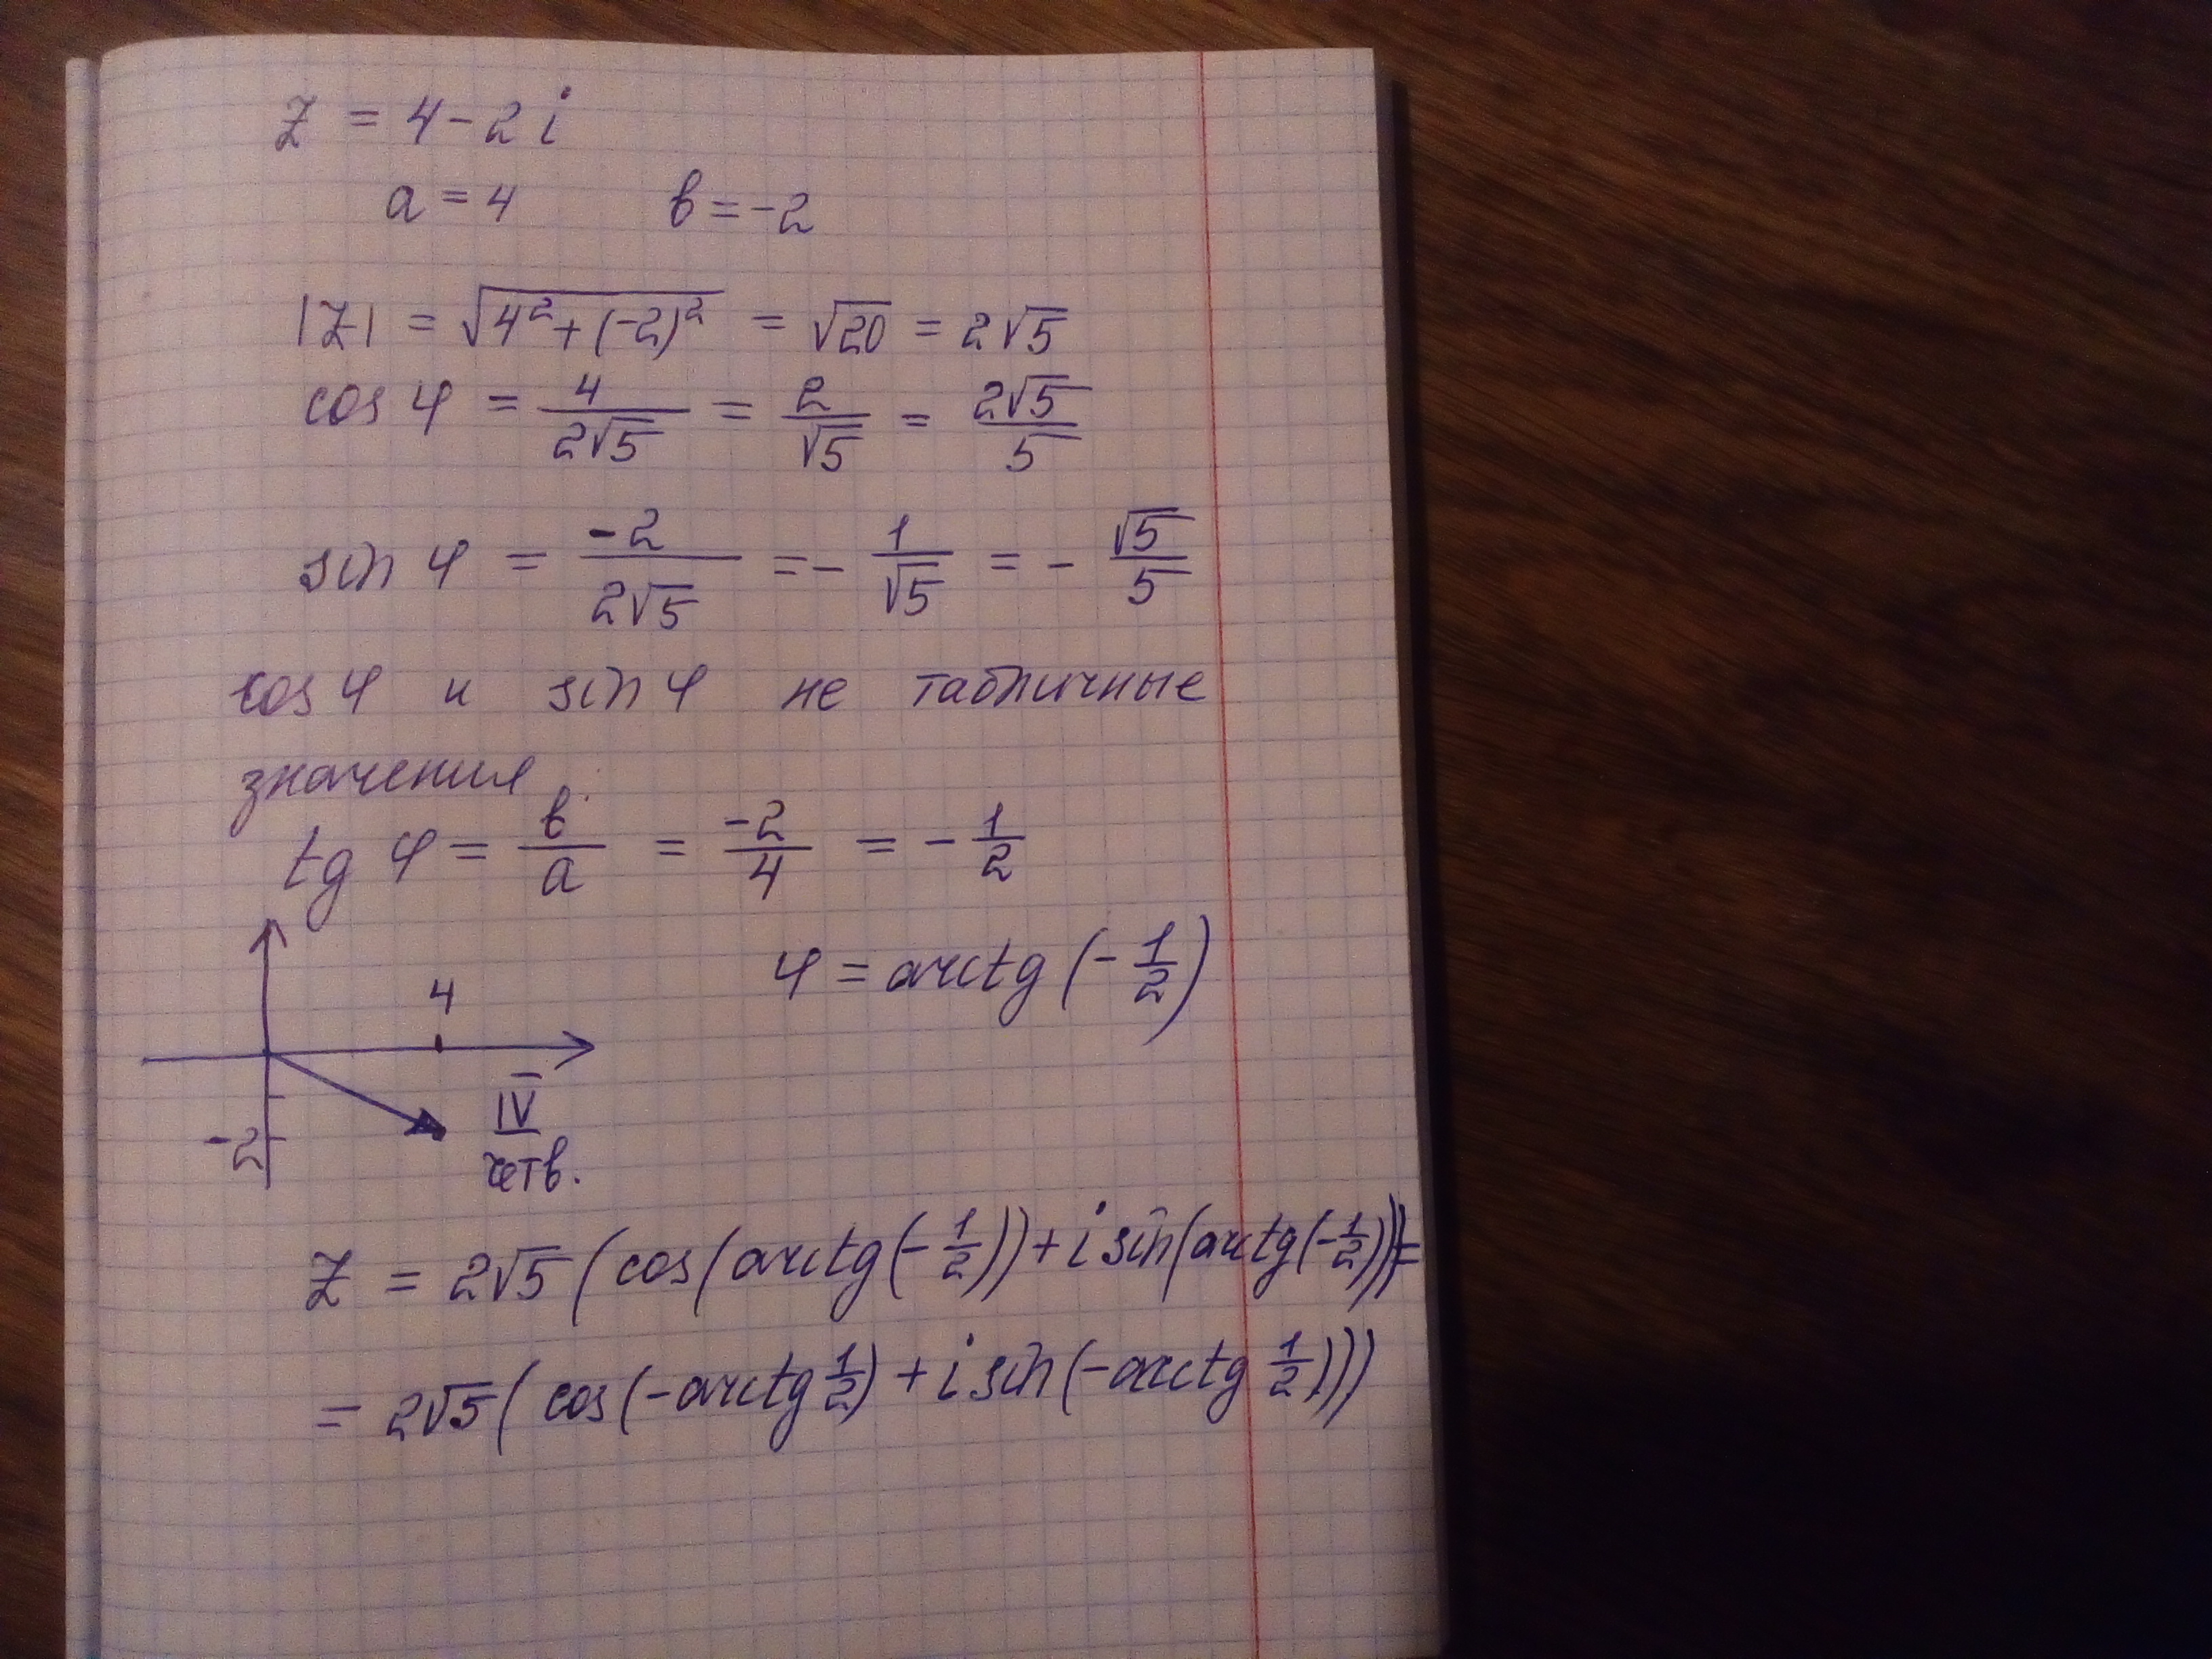 z = 4-2i
a = 4 b = -2
|z| = √(4²+(-2)²) = √20 = 2√5
cos φ = 4/(2√5) = 2/√5 = 2√5/5
sin φ = -2/(2√5) = - 1/√5 = - √5/5
cos φ и sin φ не табличные
значения
tg φ = b/a = -2/4 = - 1/2
φ = arctg(-1/2)
4
-2
IV
четв.
z = 2√5(cos(arctg(-1/2))+i sin(arctg(-1/2)))=
= 2√5(cos(-arctg 1/2) + i sin(-arctg 1/2)))